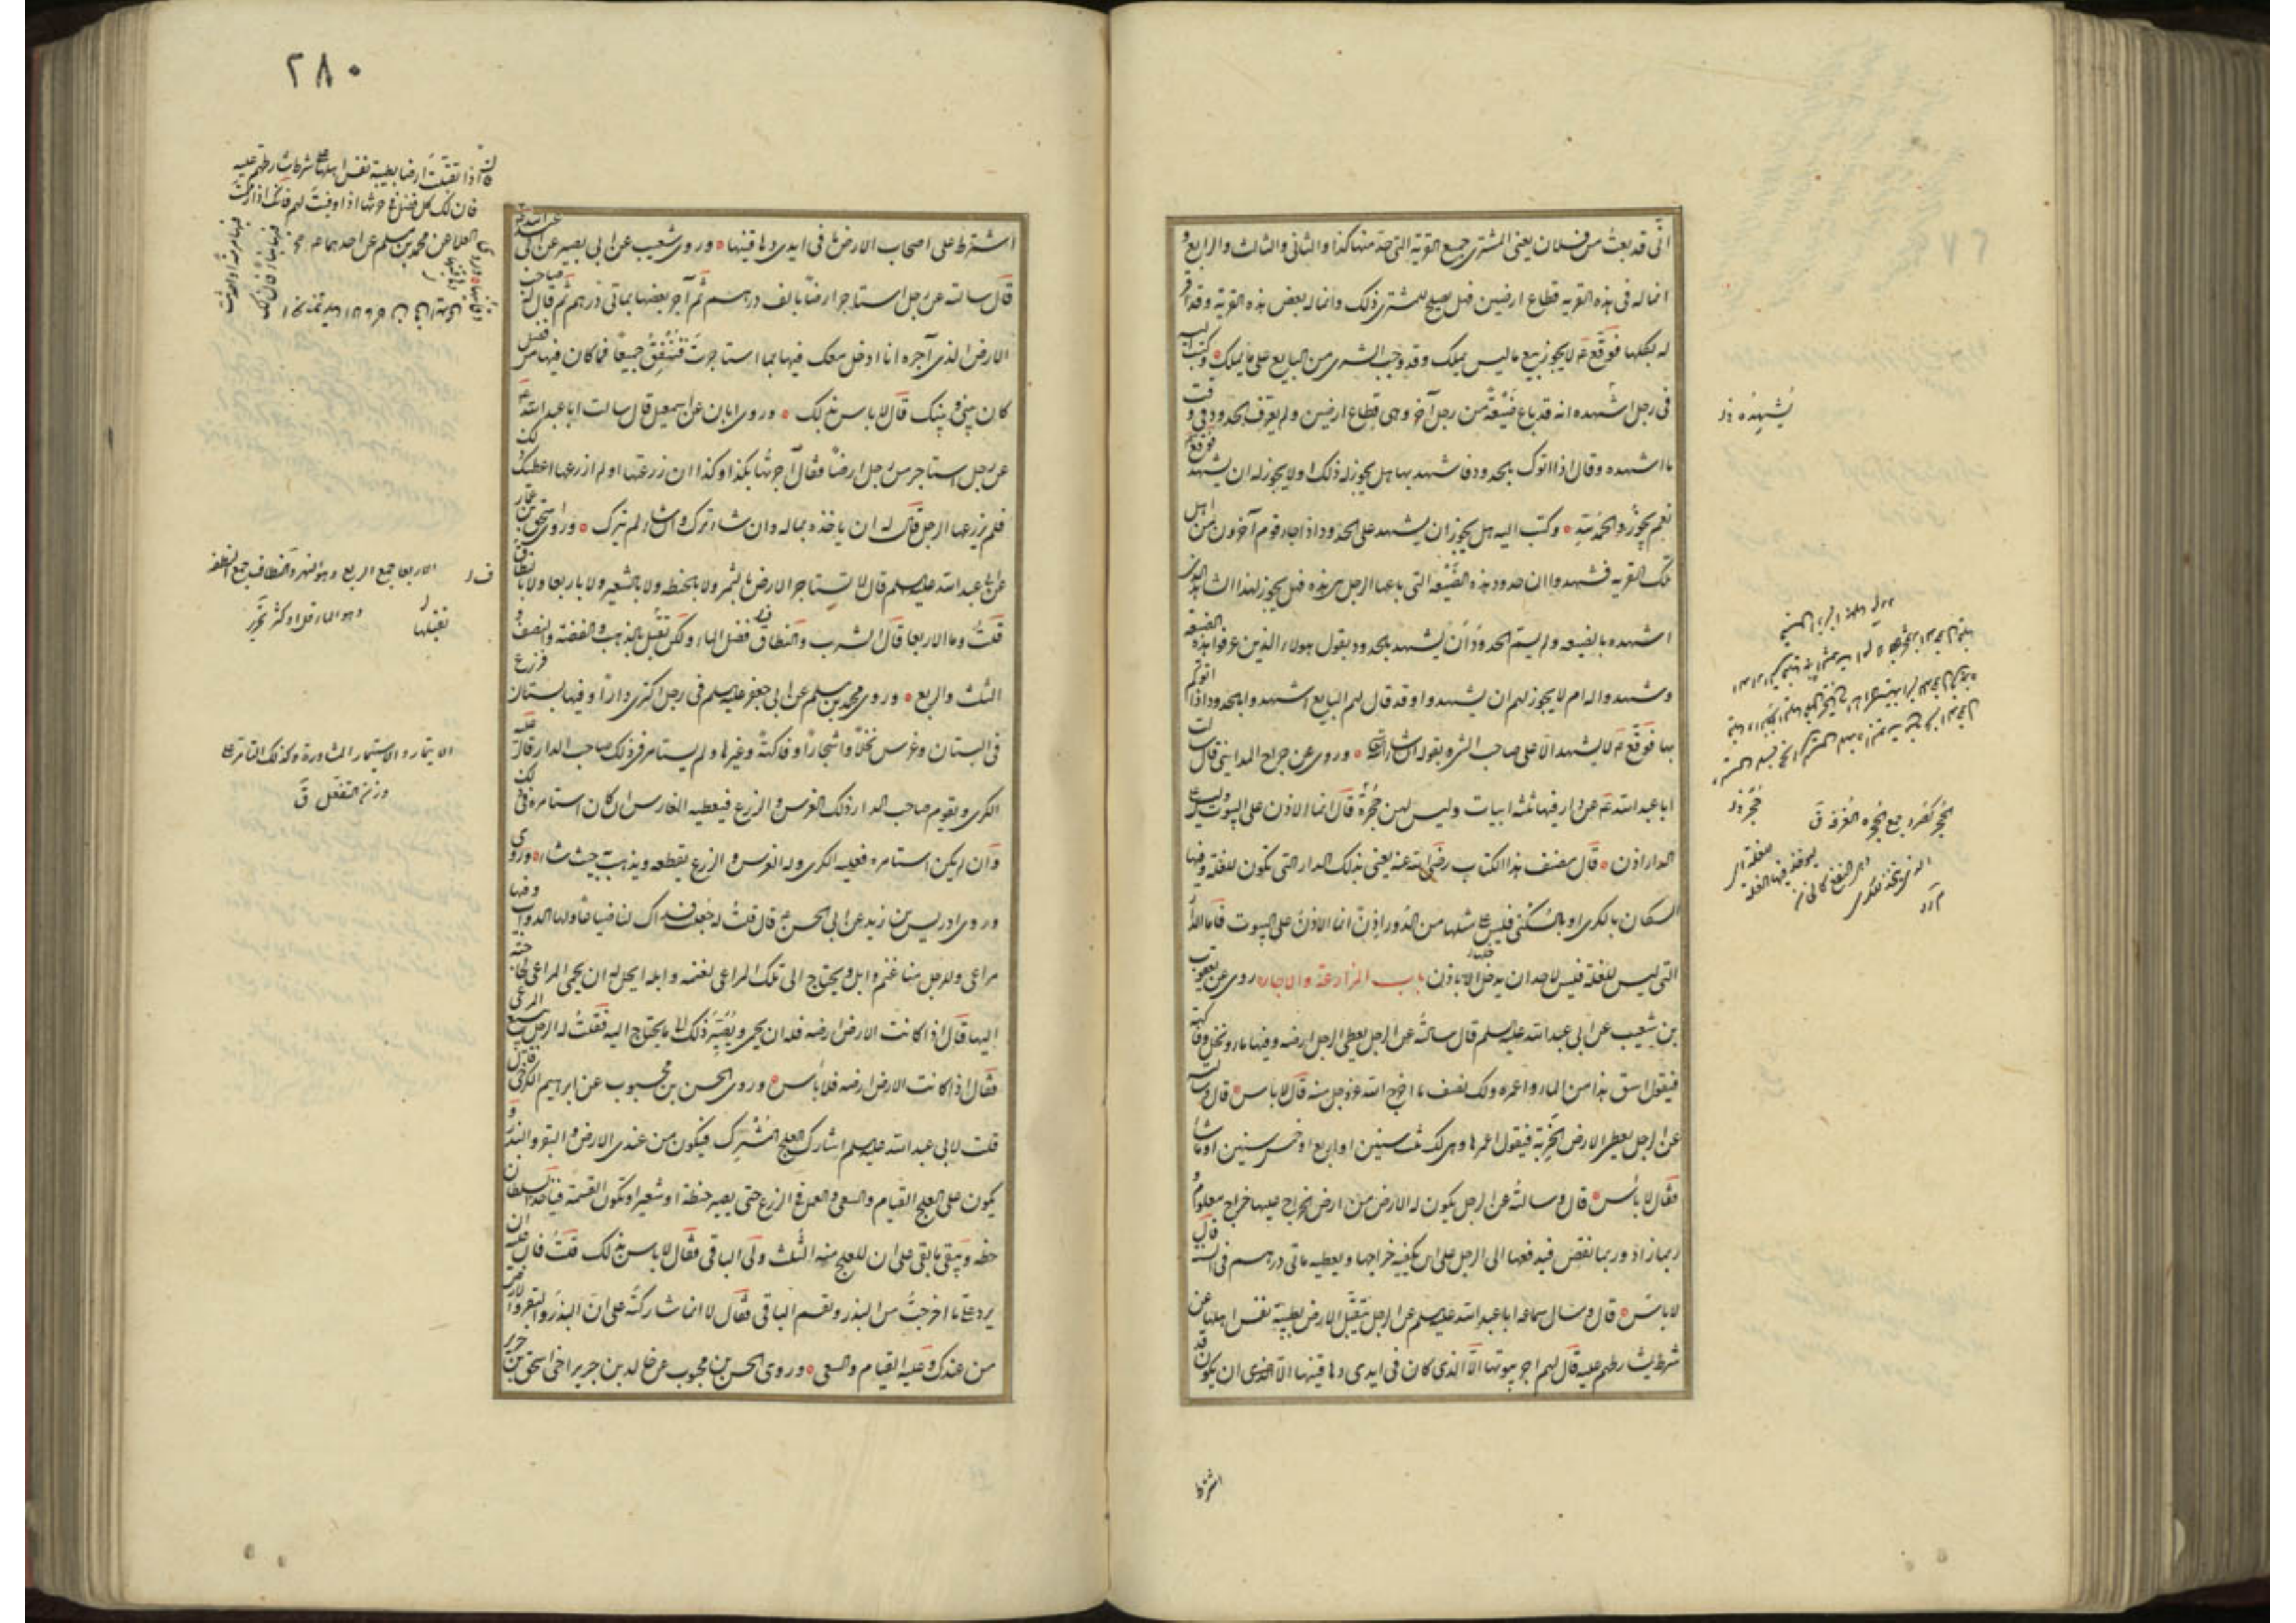 انّى قد بعت من فلان يعنى المشترى جميع القرية التى حدّ منها كذا والثانى والثالث والرابع و
انما له فى هذه القرية قطاع ارضين فهل يصلح للمشترى ذلك وانما له بعض هذه القرية وقد اقر
له بكلها فوقّع ع لا يجوز بيع ما ليس يملك وقد وجب الشرى من البايع على ما يملك وكتب اليه
فى رجل اشهده انه قد باع ضيعةً من رجل آخر وهى قطاع ارضين ولم يعرّف الحدود فى وقت
ما اشهده وقال اذا اتوك بالحدود فاشهد بها هل يجوز له ذلك او لا يجوز له ان يشهد فوقع ع
نعم يجوز والحمد لله وكتب اليه هل يجوز ان يشهد على الحدود اذا جاء قوم آخرون من اهل
تلك القرية فشهدوا ان حدود هذه الضيعة التى باعها الرجل هى هذه فهل يجوز لهذا الشاهد الذى
اشهده بالضيعه ولم يسمّ الحدود ان يشهد بالحدود بقول هولاء الذين عرفوا هذه الضيعة
وشهدوا له ام لا يجوز لهم ان يشهدوا وقد قال لهم البايع اشهدوا بالحدود اذا اتوكم
بها فوقّع ع لا يشهد الا على صاحب الشىء بقوله ان شاء الله وروى عن جراح المداينى قال سالت
ابا عبد الله ع عن دار فيها ثلثة ابيات وليس لهن حُجُرٌ قال انما الاذن على البيوت ليس على
الدار اذن قال مصنف هذا الكتاب رضى الله عنه يعنى بذلك الدار التى تكون للغلة وفيها
السكان بالكرى او بالسكنى فليس على مثلها من الدور اذن انما الاذن على البيوت فاما الدار
التى ليس للغلة فليس لاحد ان يدخلها الا باذن باب المزارعة والاجارة روى عن يعقوب
بن شعيب عن ابى عبد الله عليه السلم قال سالته عن الرجل يعطى الرجل ارضه وفيها ماء ونخل وفاكهة
فيقول اسق هذا من الماء واعمره ولك نصف ما اخرج الله عز وجل منه قال لا باس قال وسالت
عن الرجل يعطى الارض الخربة فيقول اعمرها وهى لك ثلث سنين او اربع او خمس سنين او ما شاء
فقال لا باس قال وسالته عن الرجل يكون له الارض من ارض الخراج عليها خراج معلوم و
ربما زاد وربما نقص فيدفعها الى الرجل على ان يكفيه خراجها ويعطيه مأتى درهم فى السنة قال
لا باس قال وسال سماعة ابا عبد الله عليه السلم عن الرجل يتقبّل الارض بطيبة نفس اهلها عن
شرط يشارطهم عليه قال لهم اجر بيوتها الّا الذى كان فى ايدى دهاقينها الّا ان يكون قد
اشترط
يشهده
حُجَر
الحُجَر كصُرَد جمع الحجرة الغرفة ق
٢٨٠
اشترط على اصحاب الارض ما فى ايدى دهاقينها وروى شعيب عن ابى بصير عن ابى عبد الله ع
قال سالته عن رجل استاجر ارضاً بالف درهم ثم آجر بعضها بمأتى درهم ثم قال له صاحب
الارض الذى آجره انا ادخل معك فيها بما استاجرت فننفق جميعاً فما كان فيها من فضل
كان بينى وبينك قال لا باس بذلك وروى ابان عن اسمعيل قال سالت ابا عبد الله ع
عن رجل استاجر من رجل ارضاً فقال آجرتها بكذا وكذا ان زرعتها او لم ازرعها اعطيك ذلك
فلم يزرعها الرجل قال له ان ياخذه بماله وان شاء ترك وان شاء لم يترك وروى اسحق بن عمار
عن ابى عبد الله عليه السلم قال لا تستاجر الارض بالتمر ولا بالحنطه ولا بالشعير ولا باربعا ولا بالنطاف
قلت وما الاربعا قال الشرب والنطاف فضل الماء ولكن تقبّل بالذهب والفضة والنصف و
الثلث والربع وروى محمد بن مسلم عن ابى جعفر عليه السلم فى رجل اكترى داراً وفيها بستان فزرع
فى البستان وغرس نخلاً واشجاراً وفاكهةً وغيرها ولم يستامر فى ذلك صاحب الدار قال عليه
الكرى ويقوم صاحب الدار ذلك الغرس والزرع فيعطيه الغارس ان كان استامره فى ذلك
وان لم يكن استامره فعليه الكرى وله الغرس والزرع يقطعه ويذهب حيث شاء وروى
وروى ادريس بن زيد عن ابى الحسن ع قال قلت له جعلت فداك لنا ضياعاً ولها الدواب وفيها
مراعى وللرجل منا غنم وابل ويحتاج الى تلك المراعى لغنمه وابله ايحل له ان يحمى المراعى لحاجته
اليها قال اذا كانت الارض ارضه فله ان يحمى ويُصيّر ذلك الى ما يحتاج اليه فقلت له الرجل يبيع المرعى
فقال اذا كانت الارض ارضه فلا باس وروى الحسن بن محبوب عن ابرهيم الكرخى قال
قلت لابى عبد الله عليه السلم اشارك العلج المشرك فيكون من عندى الارض والبقر والبذر و
يكون على العلج القيام والسعى والعمل فى الزرع حتى يصير حنطة او شعيرا وتكون القسمة فياخذ السلطان
حظه ويبقى ما بقى على ان للعلج منه الثلث ولى الباقى فقال لا باس بذلك قلت فان عليه ان
يرد على ما اخرجت من البذر ونقسم الباقى فقال لا انما شاركته على ان البذر والبقر والارض
من عندك وعليه القيام والسعى وروى الحسن بن محبوب عن خالد بن جرير اخى اسحق بن جرير
اذا تقبّلت ارضا بطيبة نفس اهلها على شرط تشارطهم عليه
فان لك كل فضل فى حرثها اذا اوفيت لهم
العلا عن محمد بن مسلم عن احدهما
الاربعا جمع الربيع وهو النهر والنطاف جمع النطفة
وهو الماء قل او كثر
تقبلها
الايتمار والاستيمار المشاورة وكذلك التآمر على
وزن التفعّل ق